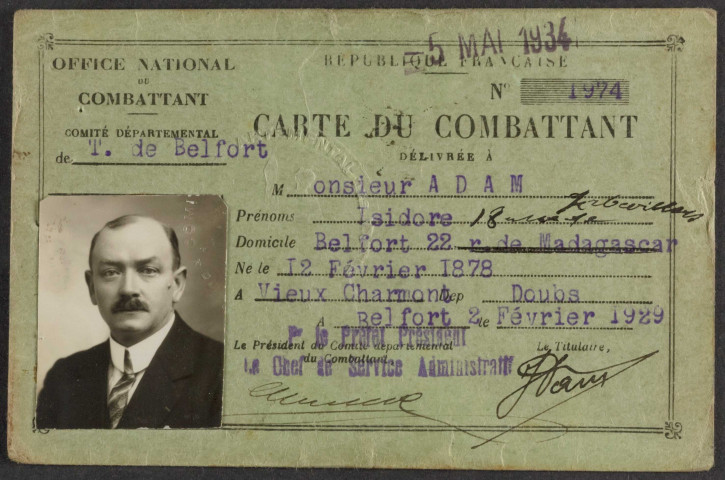 5 MAI 1934
OFFICE NATIONAL
DU
COMBATTANT
COMITÉ DÉPARTEMENTAL
de T. de Belfort
RÉPUBLIQUE FRANÇAISE
N° 1974
CARTE DU COMBATTANT
DÉLIVRÉE À
Monsieur ADAM
Prénoms Isidore
Domicile Belfort 22 r. de Madagascar
Né le 12 Février 1878
A Vieux Charmont Dep Doubs
A Belfort 2 le Février 1929
Pr le Préfet Président
Le Président du Comité départemental
du Combattant
Le Chef de Service Administratif
Le Titulaire,